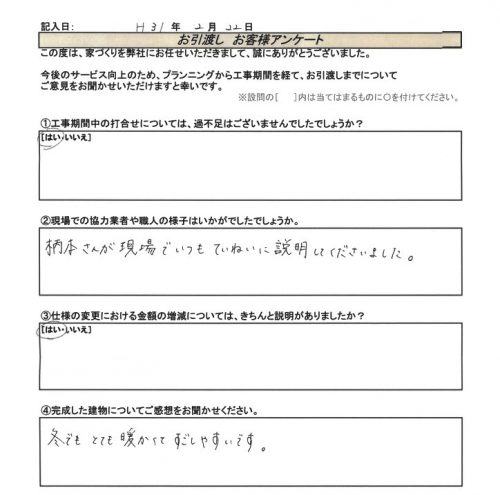 記入日: H31年 2月 22日
お引渡し お客様アンケート
この度は、家づくりを弊社にお任せいただきまして、誠にありがとうございました。
今後のサービス向上のため、プランニングから工事期間を経て、お引渡しまでについて
ご意見をお聞かせいただけますと幸いです。
※設問の[ ]内は当てはまるものに○を付けてください。
①工事期間中の打合せについては、過不足はございませんでしたでしょうか？
[はい・いいえ]
②現場での協力業者や職人の様子はいかがでしたでしょうか。
柄本さんが現場でいつもていねいに説明してくださいました。
③仕様の変更における金額の増減については、きちんと説明がありましたか？
[はい・いいえ]
④完成した建物についてご感想をお聞かせください。
冬でもとても暖かくてすごしやすいです。